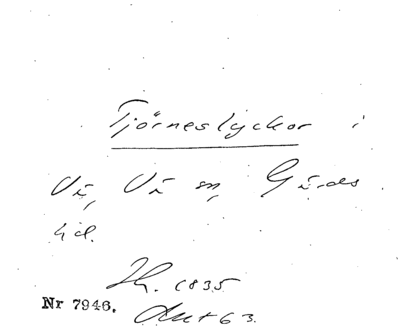 Tjörneslyckor i
Vä, Vä sn, Gärds
hd.
Jh. 1835
Nr 7946. Akt 63.